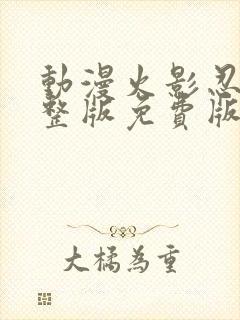 動漫火影忍
整版免費版
大橘為重